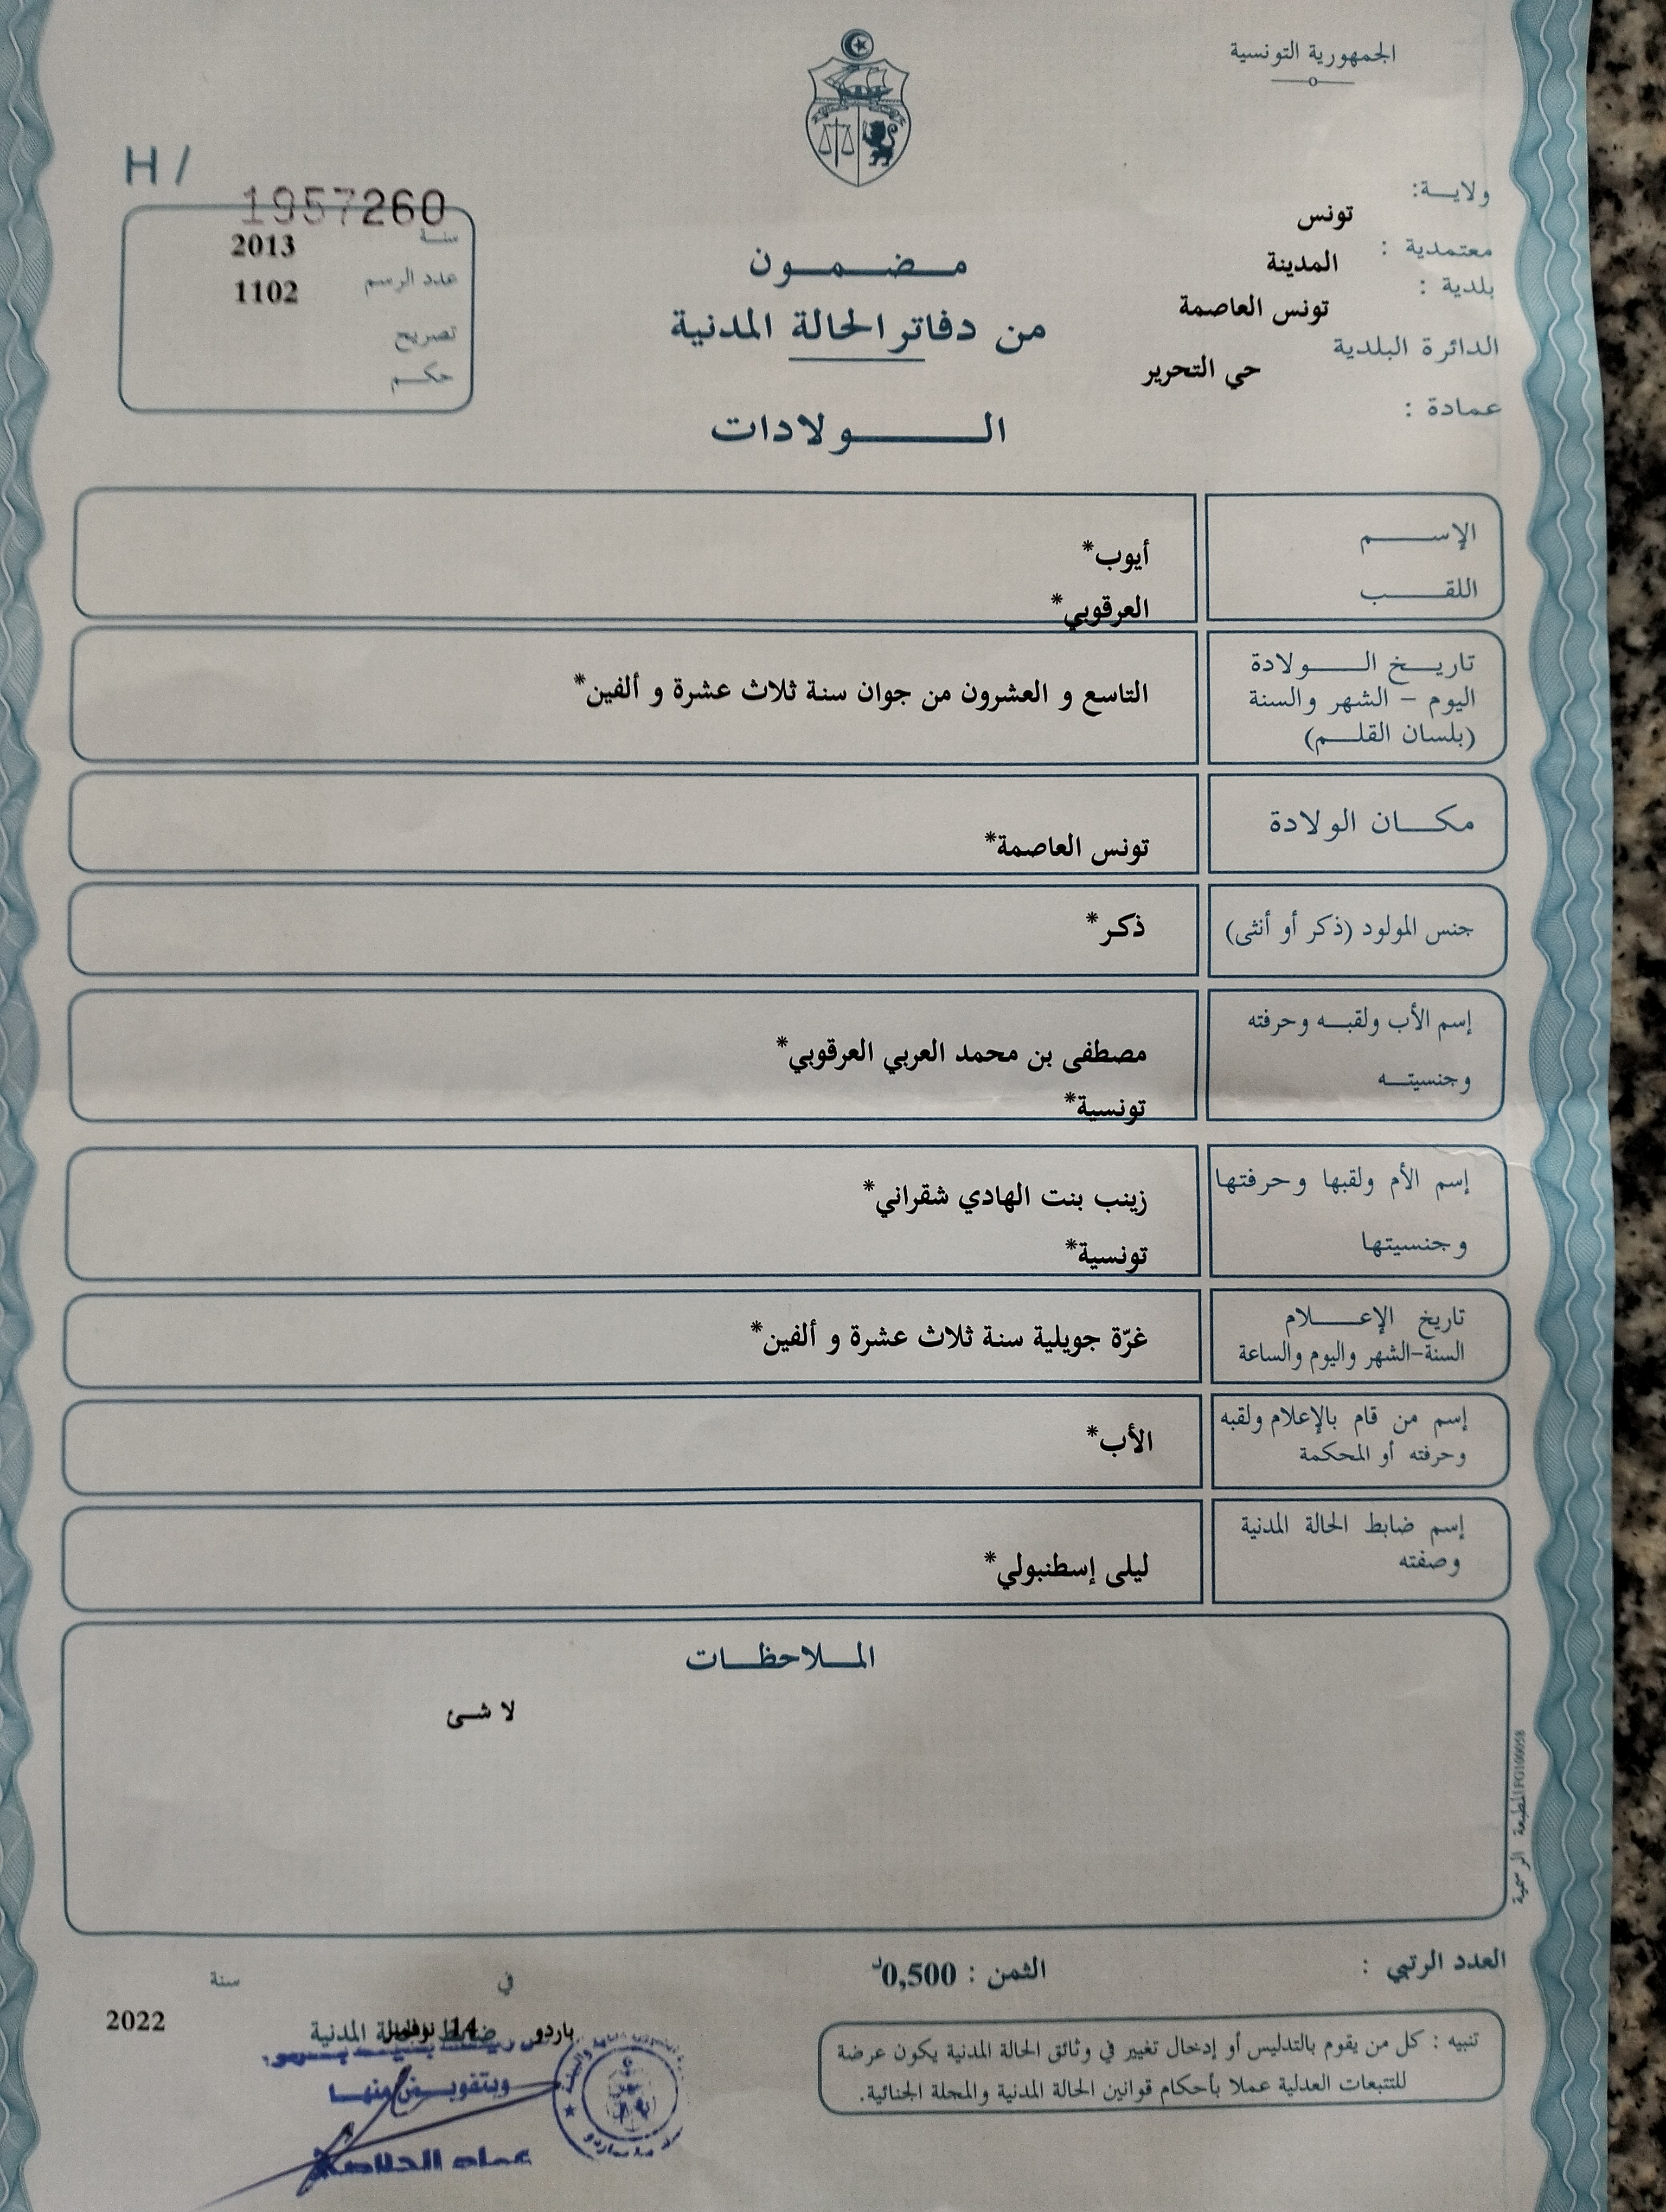 الجمهورية التونسية
H / 1957260
ولاية: تونس
معتمدية : المدينة
بلدية : تونس العاصمة
الدائرة البلدية حي التحرير
عمادة :
سنة 2013
عدد الرسم 1102
تصريح
حكم
مضمون
من دفاتر الحالة المدنية
الولادات
الإسم أيوب*
اللقب العرقوبي*
تاريخ الولادة
اليوم - الشهر والسنة
(بلسان القلم)
التاسع و العشرون من جوان سنة ثلاث عشرة و ألفين*
مكان الولادة
تونس العاصمة*
جنس المولود (ذكر أو أنثى)
ذكر*
إسم الأب ولقبه وحرفته
مصطفى بن محمد العربي العرقوبي*
وجنسيته
تونسية*
إسم الأم ولقبها وحرفتها
زينب بنت الهادي شقراني*
وجنسيتها
تونسية*
تاريخ الإعلام
السنة-الشهر واليوم والساعة
غرّة جويلية سنة ثلاث عشرة و ألفين*
إسم من قام بالإعلام ولقبه
وحرفته أو المحكمة
الأب*
إسم ضابط الحالة المدنية
وصفته
ليلى إسطنبولي*
الملاحظات
لا شئ
المطبعة الرسمية FG100058
العدد الرتبي :
الثمن : 0,500د
في
سنة
باردو 14 نوفمبر
2022
ضابط الحالة المدنية
وبتفويض منها
عماد
تنبيه : كل من يقوم بالتدليس أو إدخال تغيير في وثائق الحالة المدنية يكون عرضة
للتتبعات العدلية عملا بأحكام قوانين الحالة المدنية والمجلة الجنائية.